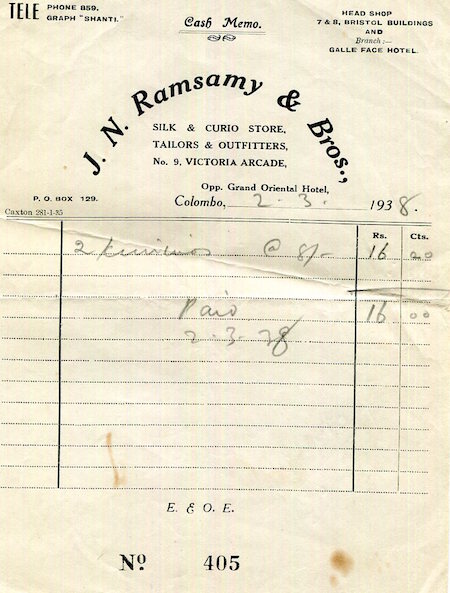 TELE PHONE 859.
GRAPH "SHANTI."
Cash Memo.
HEAD SHOP
7 & 8, BRISTOL BUILDINGS
AND
Branch :—
GALLE FACE HOTEL.
J. N. Ramsamy & Bros.,
SILK & CURIO STORE,
TAILORS & OUTFITTERS,
No. 9, VICTORIA ARCADE,
Opp. Grand Oriental Hotel,
P. O. BOX 129.
Colombo, 2. 3. 1938.
Caxton 281-1-35
Rs. Cts.
2 @ 8/- 16 00
Paid 16 00
2. 3. 38
E. & O. E.
No 405